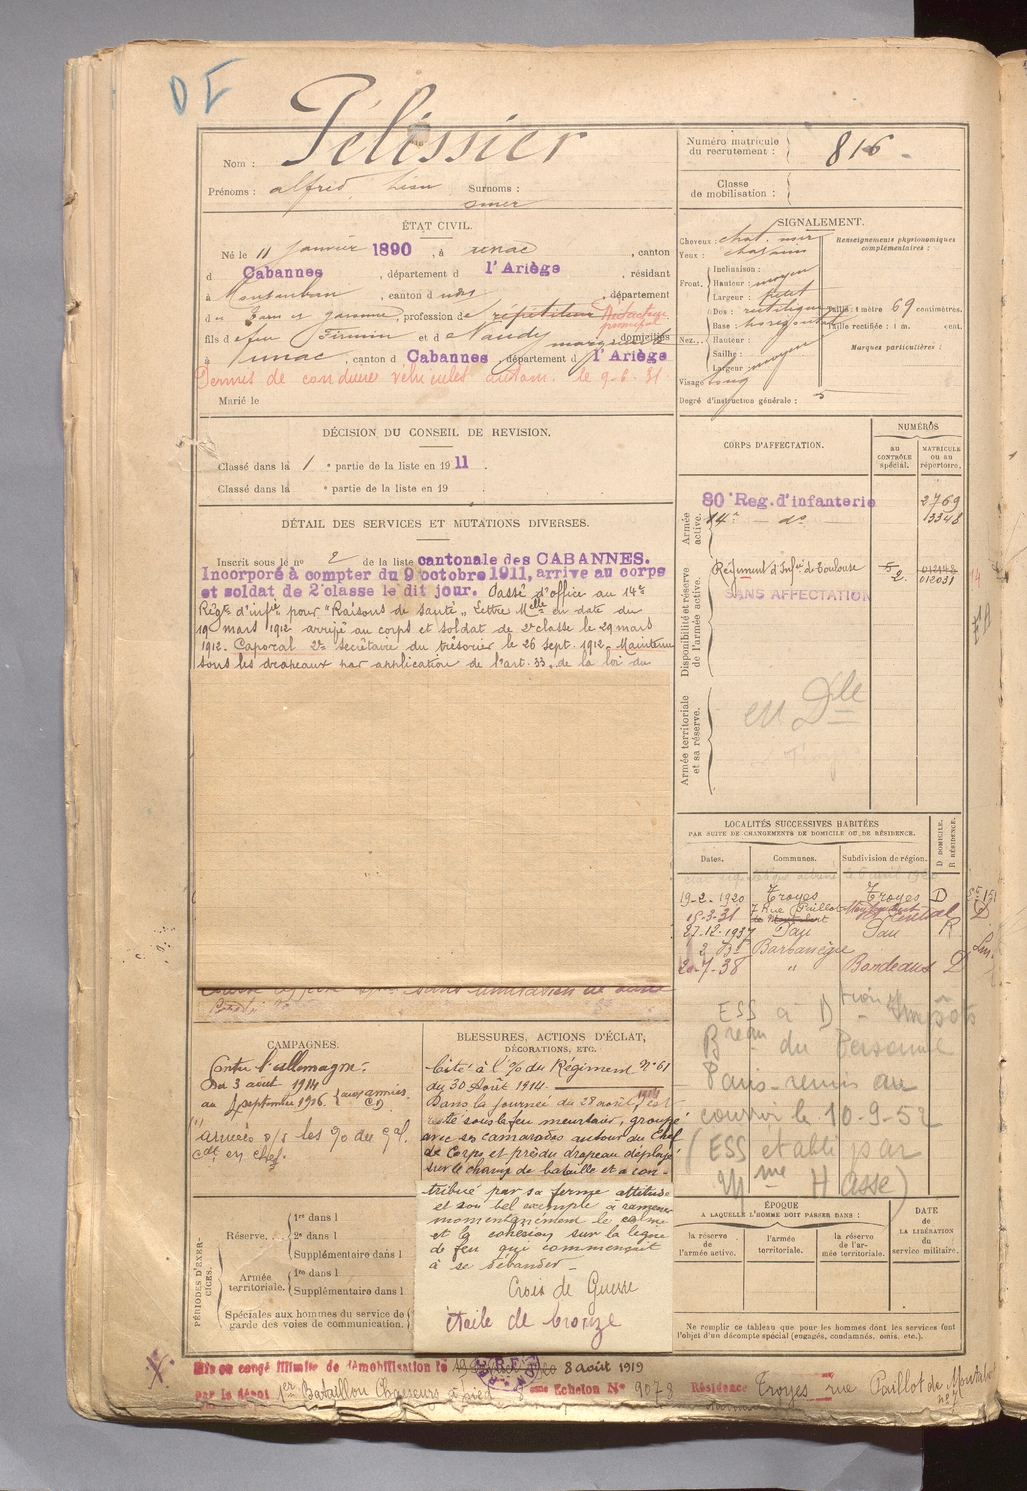 DF
Nom : Pélissier
Prénoms : alfred Léon Surnoms :
omer
Numéro matricule
du recrutement : 816.
Classe
de mobilisation :
ÉTAT CIVIL.
Né le 11 janvier 1890, à unac, canton
d Cabannes, département d l'Ariège, résidant
à Montauban, canton d udit, département
du Tarn et garonne, profession de répétiteur Rédacteur principal
fils de feu Firmin et de Naudy marguerite domiciliés
à unac, canton d Cabannes, département d l'Ariège
Permis de conduire véhicules autom. le 9-6-31.
Marié le
SIGNALEMENT.
Cheveux : chat. noir
Yeux : chatains
Front. Inclinaison :
Hauteur : moyen
Largeur : petit
Nez. Dos : rectiligne
Base : horizontale
Hauteur :
Saillie :
Largeur : moyen
Visage long
Renseignements physionomiques
complémentaires :
Taille : 1 mètre 69 centimètres.
Taille rectifiée : 1 m. cent.
Marques particulières :
Degré d'instruction générale : 5
DÉCISION DU CONSEIL DE REVISION.
Classé dans la 1 e partie de la liste en 1911.
Classé dans la e partie de la liste en 19 .
DÉTAIL DES SERVICES ET MUTATIONS DIVERSES.
Inscrit sous le nº 2 de la liste cantonale des CABANNES.
Incorporé à compter du 9 octobre 1911, arrive au corps
et soldat de 2e classe le dit jour. Passé d'office au 14e
Régt d'infie pour "Raisons de santé" Lettre Melle en date du
19 mars 1912 arrivé au corps et soldat de 2e classe le 29 mars
1912. Caporal 2e secrétaire du trésorier le 26 sept. 1912. Maintenu
sous les drapeaux par application de l'art. 33, de la loi du
CORPS D'AFFECTATION.
NUMÉROS
AU CONTRÔLE spécial.
MATRICULE OU AU répertoire.
Armée active.
80e Reg. d'infanterie 2769
14e — do — 13348
Disponibilité et réserve de l'armée active.
Régiment d'Infie de Toulouse
012031
SANS AFFECTATION
Armée territoriale et sa réserve.
en Dle
LOCALITÉS SUCCESSIVES HABITÉES
PAR SUITE DE CHANGEMENTS DE DOMICILE OU DE RÉSIDENCE.
Dates. Communes. Subdivision de région. D DOMICILE. R RÉSIDENCE.
19-2-1920 Troyes Troyes D
15-3-31 7 Rue Paillot de Montabert D
27.12.1937 Pau Pau R
2 Bd Barbanègre
20-7-38 " Bordeaux D
ESS à Dtion Impôts
Breau du Personnel
Paris-remis au
courrier le 10-9-52
(ESS établi par
Mme Hasse)
CAMPAGNES.
Contre l'allemagne :
Du 3 août 1914
au septembre 1916. (aux armées.
BLESSURES, ACTIONS D'ÉCLAT,
DÉCORATIONS, ETC.
Cité à l'% du Régiment Nº 61
du 30 Août 1914.
Dans la journée du 28 août 1914 est
resté sous le feu meurtrier, groupé
avec ses camarades autour du Chef
de Corps, et près du drapeau déployé
sur le champ de bataille et a con-
tribué par sa ferme attitude
et son bel exemple à ramener
momentanément le calme
et la cohésion sur la ligne
de feu qui commençait
à se débander.
Croix de Guerre
étoile de bronze
PÉRIODES D'EXERCICES.
Réserve.
1re dans l
2e dans l
Supplémentaire dans l
Armée territoriale.
1re dans l
Supplémentaire dans l
Spéciales aux hommes du service de
garde des voies de communication.
ÉPOQUE
A LAQUELLE L'HOMME DOIT PASSER DANS :
la réserve de l'armée active.
l'armée territoriale.
la réserve de l'armée territoriale.
DATE de LA LIBÉRATION du service militaire.
Ne remplir ce tableau que pour les hommes dont les services font
l'objet d'un décompte spécial (engagés, condamnés, omis, etc.).
Mis en congé illimité de démobilisation le 8 août 1919
par le dépôt 1er Bataillon Chasseurs à pied 8 eme Echelon Nº 9078 Résidence Troyes rue Paillot de Montabert
nº 7